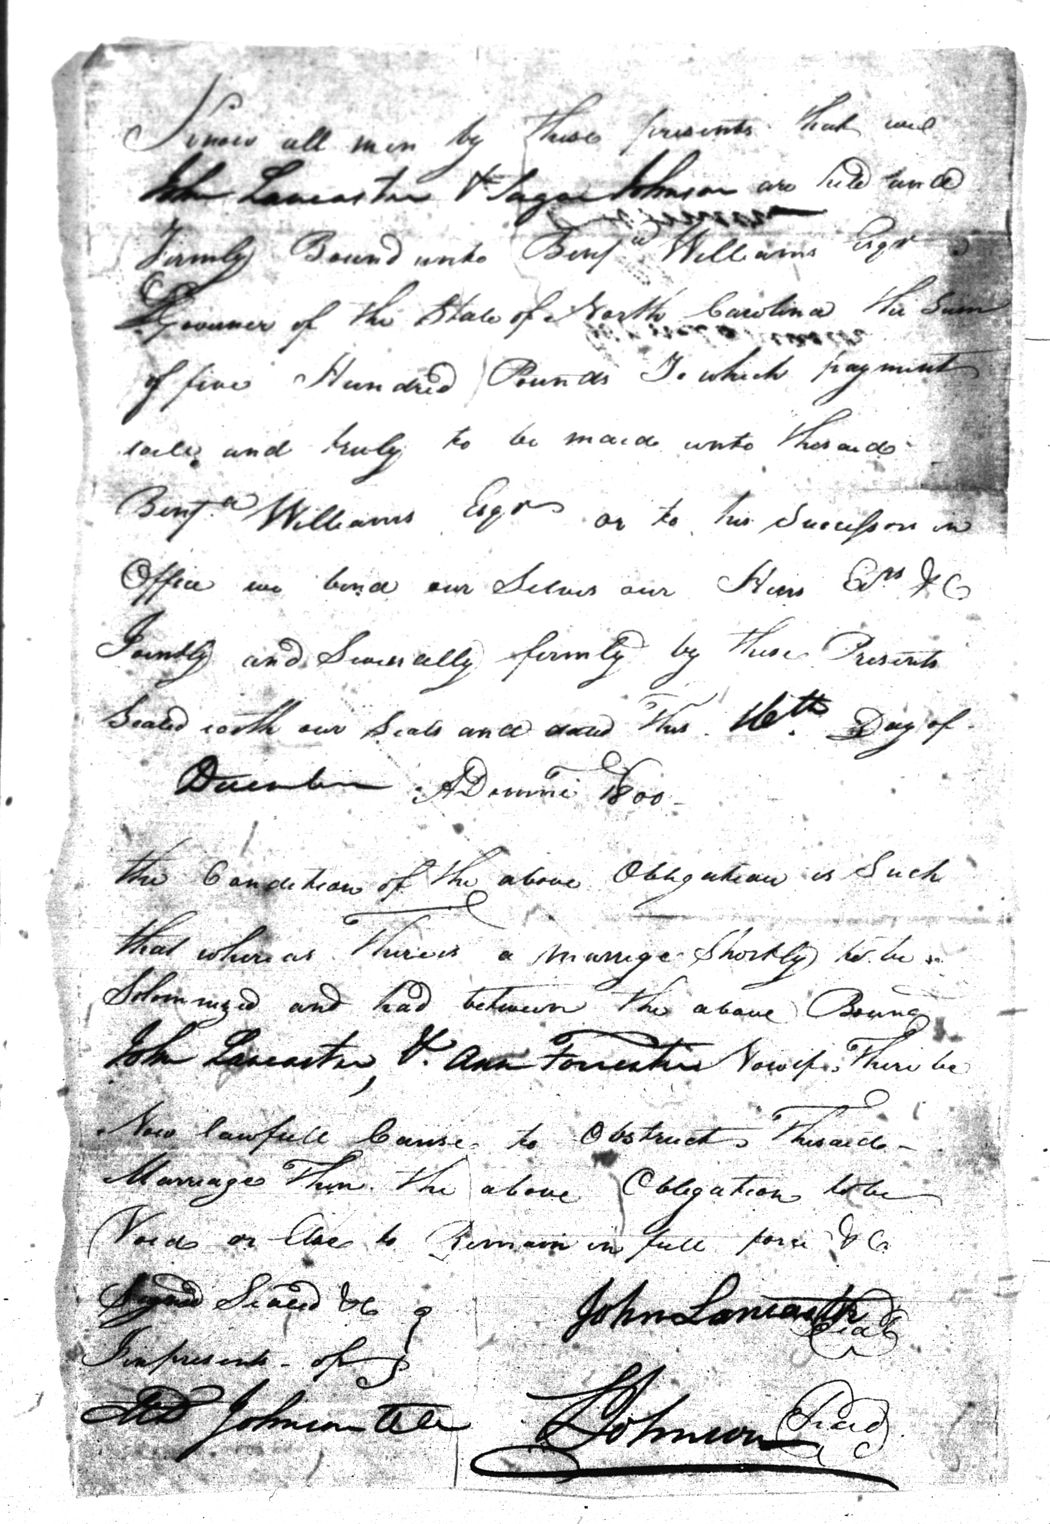 Know all men by these presents that we
John Lancaster & Sugar Johnson are held and
Firmly Bound unto Benjᵃ Williams Esqr
Governer of the State of North Carolina the Sum
of five Hundred Pounds To which payment
well and truly to be made unto thesaid
Benjᵃ Williams Esqr or to his Successors in
Office we bind our Selves our Heirs Exrs &C
Jointly and Severally firmly by these Presents
Sealed with our Seals and dated this 16th Day of
December ADomini 1800
the Condition of the above Obligation is Such
that whereas There is a marrige Shortly to be
Solomnized and had between the above Boun
John Lancaster, & Ann Forrester Now if There be
Now lawfull Cause to Obstruct Thesaid
Marriage Then the above Obligation to be
Void or Else to Remain in full force &C
Signed Sealed &C
In presents of
John Lancaster Seal
Johnson
Johnson Seal